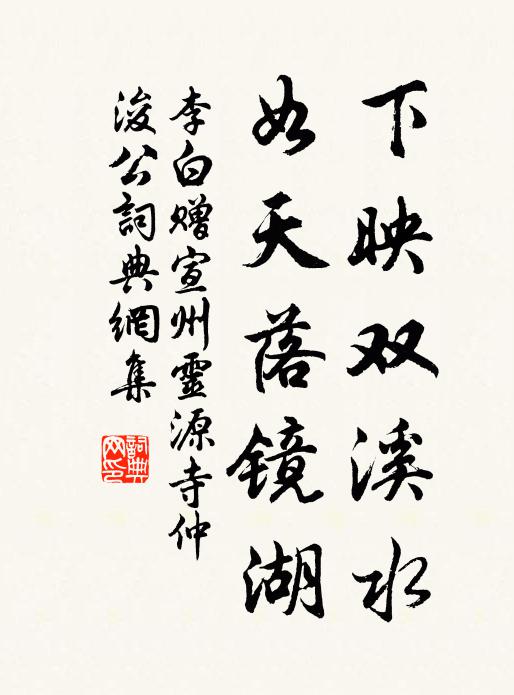 下映双溪水
如天落镜湖
李白赠宣州靈源寺仲
浚公詞典網集
詞典网印